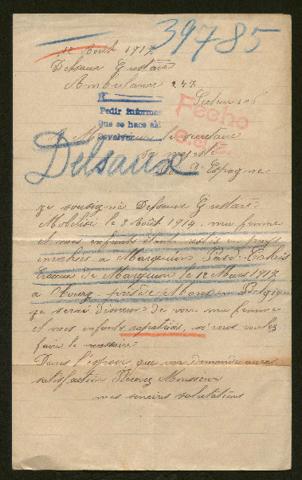 39785
12 Août 1917
Delsaux Gustave
Ambulance 247
Secteur
Pedir informes
que se hace
devolver
Fecho
Monsieur le Secrétaire
Delsaux
d'Espagne
Je soussigné Delsaux Gustave
Mobilisé le 2 Août 1914, ma femme
et mes enfants étant restés en pays
envahis à Marquion Pas-de-Calais
évacués de Marquion le 12 Mars 1917
à près de Mons Belgique
je serais désireux de voir ma femme
et mes enfants rapatriés, si vous voulez
faire le nécessaire.
Dans l'espoir que ma demande aura
satisfaction Recevez Monsieur
mes sincères salutations